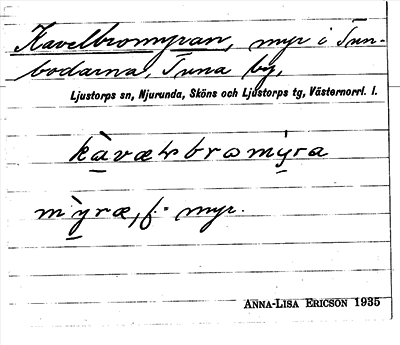 Kavelbromyran, myr i Tun-
bodarna, Tuna by,
Ljustorps sn, Njurunda, Sköns och Ljustorps tg, Västernorrl. l.
myræ, f. myr.
ANNA-LISA ERICSON 1935